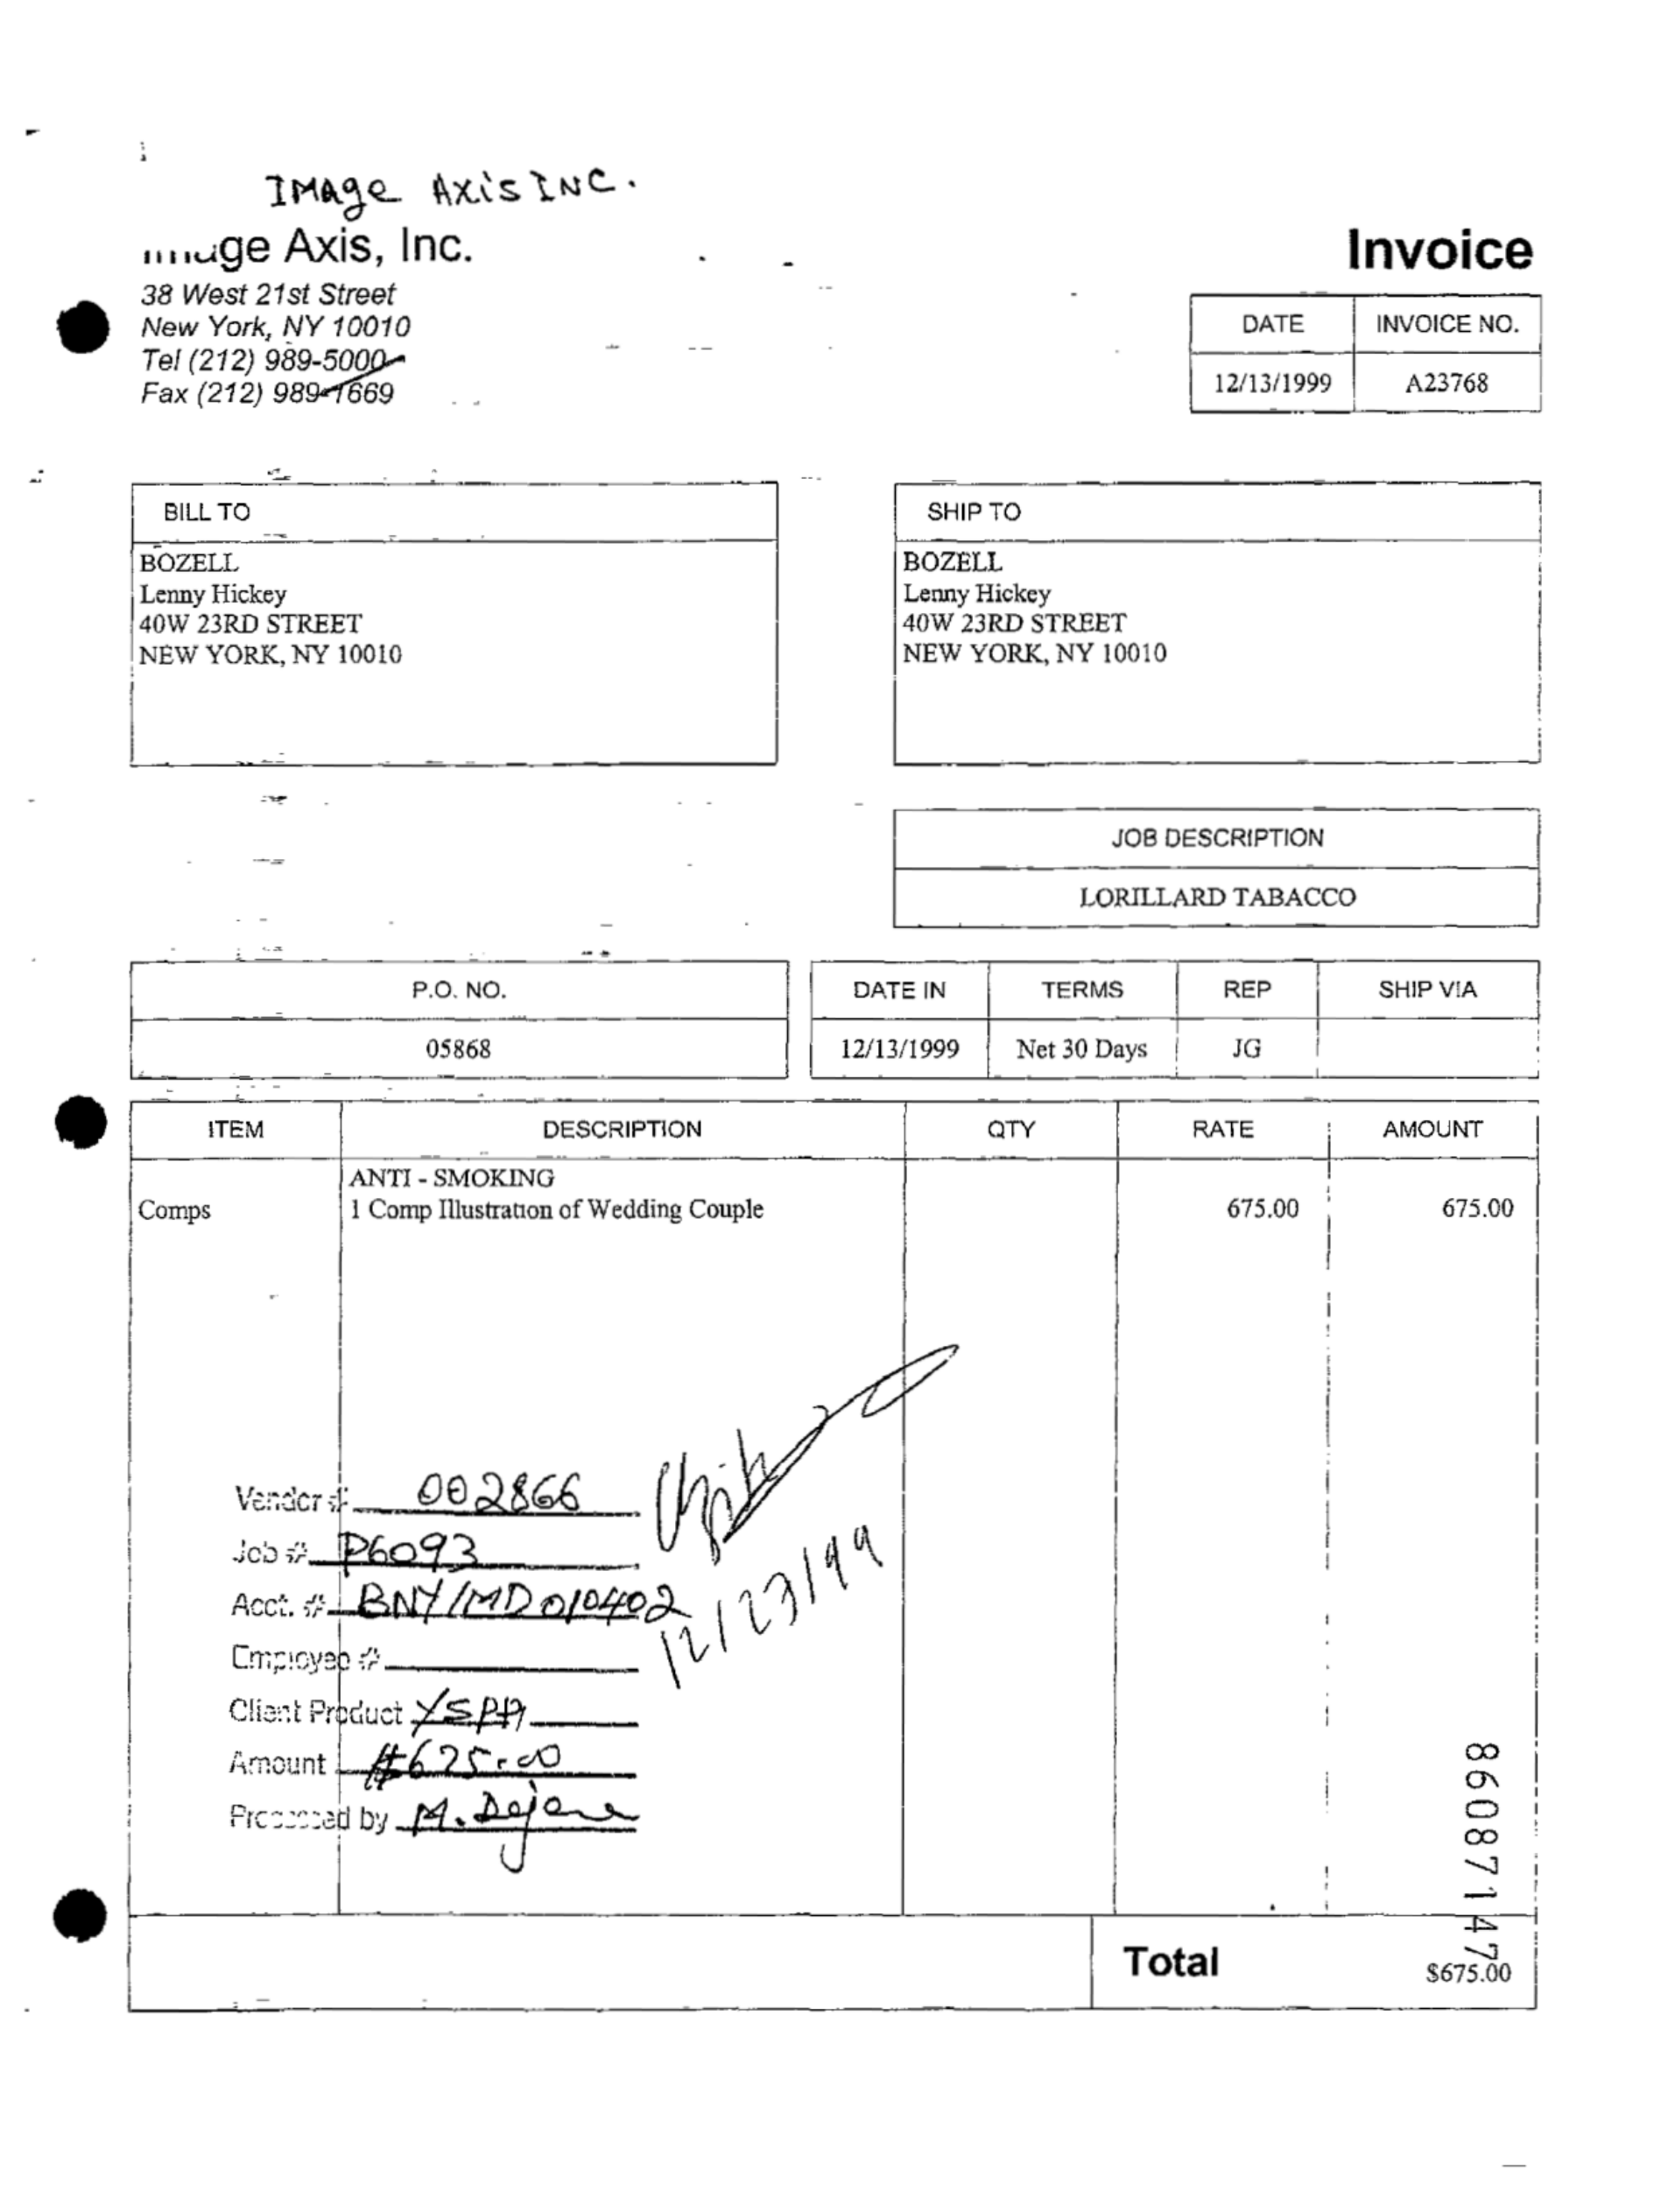 IMAge AxisINC.
Image Axis, Inc.
38 West 21st Street
New York, NY 10010
Tel (212) 989-5000
Fax (212) 989-1669
Invoice
DATE INVOICE NO.
12/13/1999 A23768
BILL TO
BOZELL
Lenny Hickey
40W 23RD STREET
NEW YORK, NY 10010
SHIP TO
BOZELL
Lenny Hickey
40W 23RD STREET
NEW YORK, NY 10010
JOB DESCRIPTION
LORILLARD TABACCO
P.O. NO.
05868
DATE IN TERMS REP SHIP VIA
12/13/1999 Net 30 Days JG
ITEM DESCRIPTION QTY RATE AMOUNT
ANTI - SMOKING
Comps 1 Comp Illustration of Wedding Couple 675.00 675.00
Vendor # 002866
Job # P6093
Acct. # BNY/MD010402
12/23/99
Employee #
Client Product YSPP
Amount $675.00
Processed by M. Dejene
86087147
Total $675.00